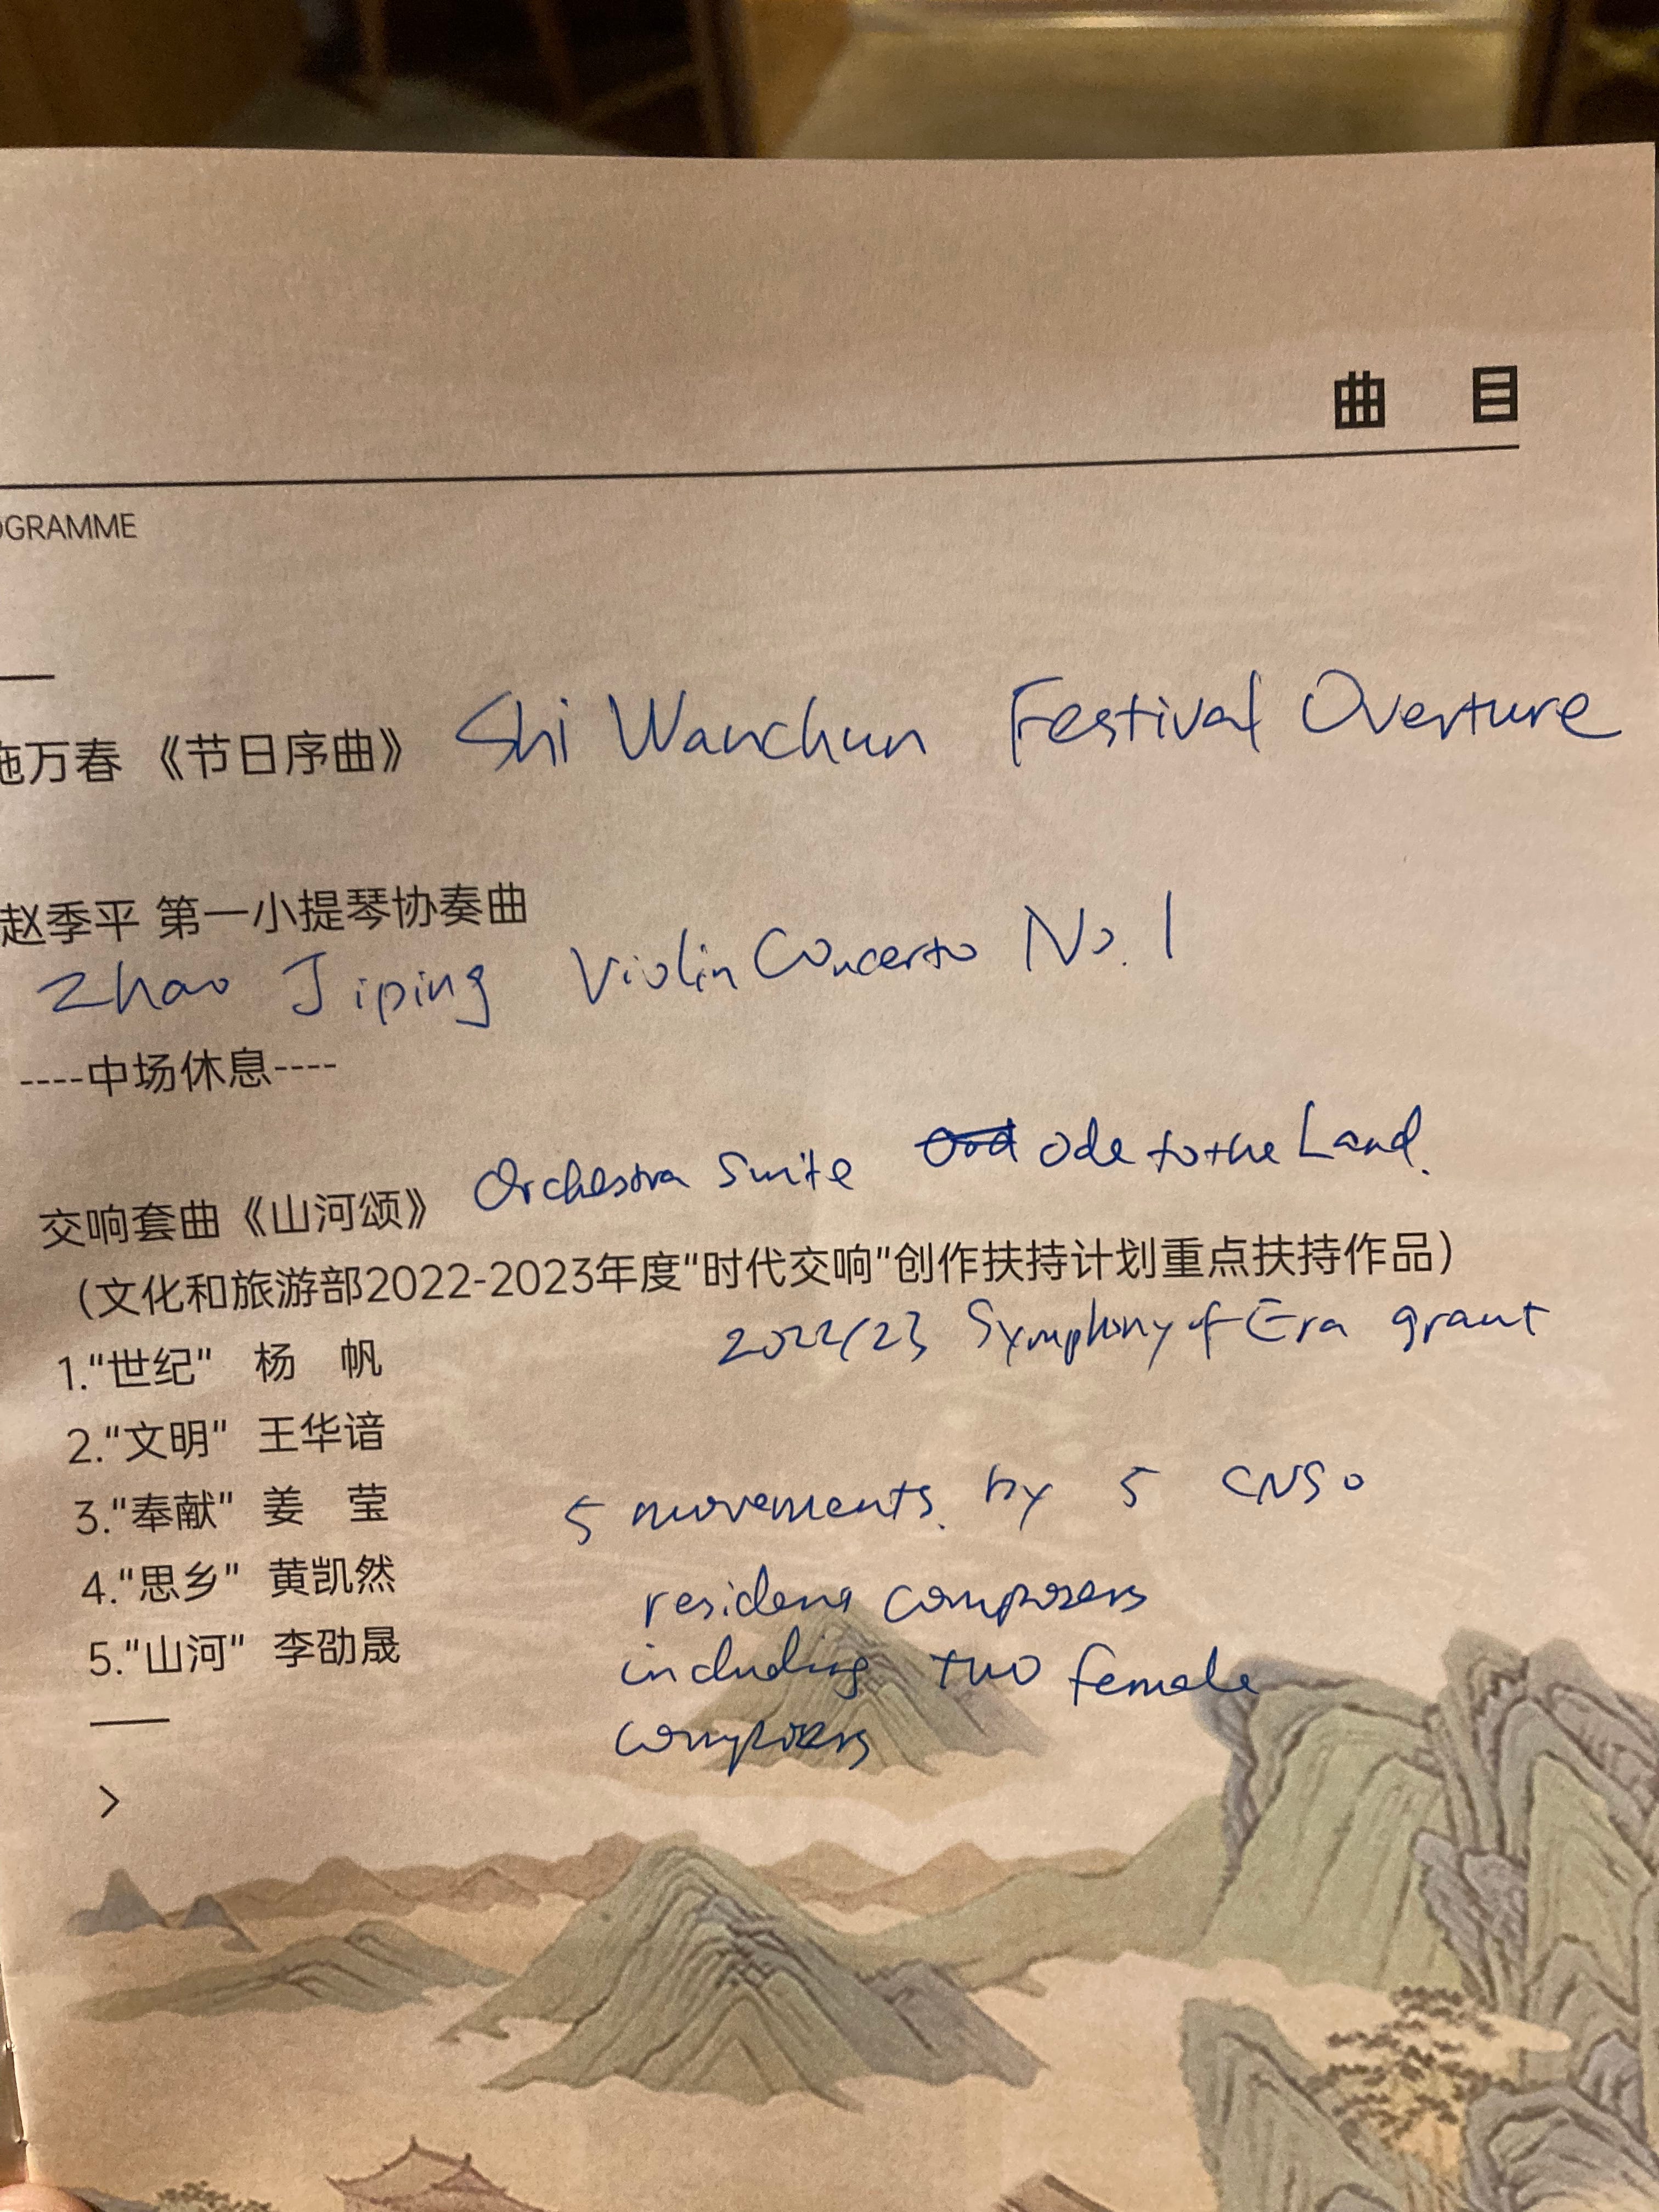 曲 目
OGRAMME
施万春 《节日序曲》 Shi Wanchun Festival Overture
赵季平 第一小提琴协奏曲
Zhao Jiping Violin Concerto No. 1
----中场休息----
交响套曲《山河颂》 Orchestra Suite Ode to the Land.
（文化和旅游部2022-2023年度“时代交响”创作扶持计划重点扶持作品）
2022/23 Symphony of Era grant
1.“世纪” 杨 帆
2.“文明” 王华谙
3.“奉献” 姜 莹
4.“思乡” 黄凯然
5.“山河” 李劭晟
5 movements. by 5 CNSO
composers
including two female
composers
>